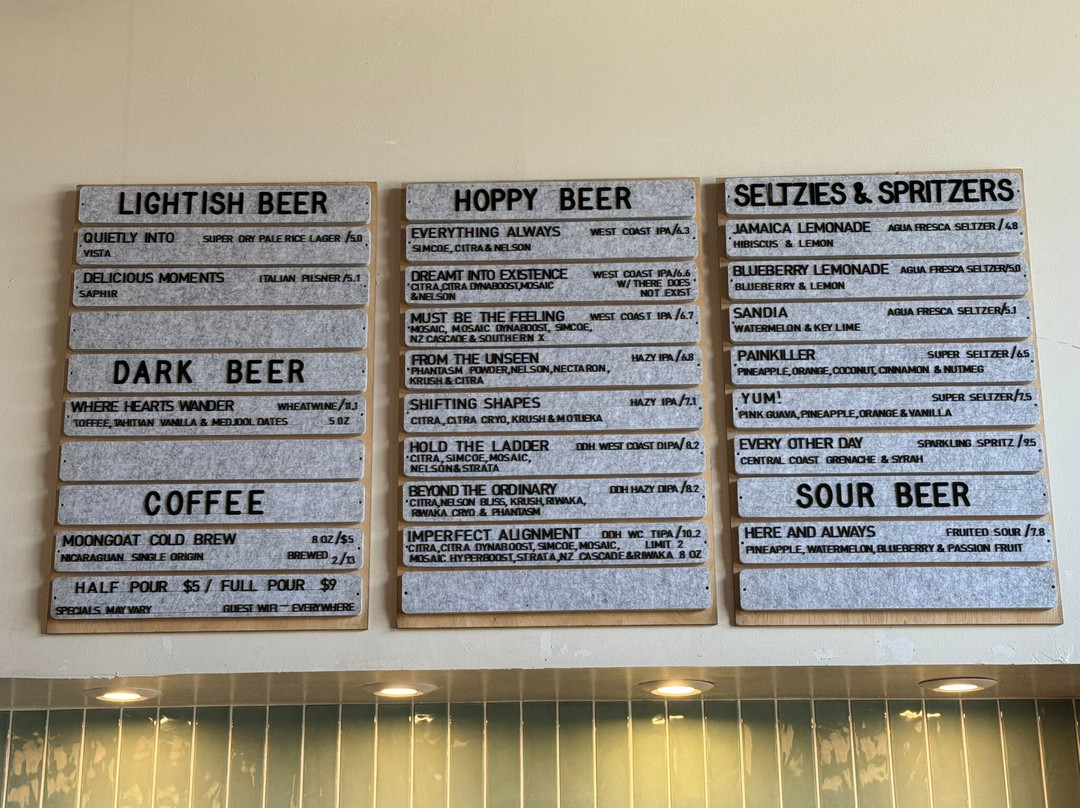 LIGHTISH BEER
QUIETLY INTO SUPER DRY PALE RICE LAGER /5.0
VISTA
DELICIOUS MOMENTS ITALIAN PILSNER/5.1
SAPHIR
DARK BEER
WHERE HEARTS WANDER WHEATWINE/11.1
TOFFEE, TAHITIAN VANILLA & MEDJOOL DATES 5 OZ
COFFEE
MOONGOAT COLD BREW 8 OZ/$5
NICARAGUAN SINGLE ORIGIN BREWED 2/13
HALF POUR $5 / FULL POUR $9
SPECIALS MAY VARY GUEST WIFI - EVERYWHERE
HOPPY BEER
EVERYTHING ALWAYS WEST COAST IPA/6.3
SIMCOE, CITRA & NELSON
DREAMT INTO EXISTENCE WEST COAST IPA/6.6
CITRA, CITRA DYNABOOST, MOSAIC W/ THERE DOES
& NELSON NOT EXIST
MUST BE THE FEELING WEST COAST IPA /6.7
MOSAIC, MOSAIC DYNABOOST, SIMCOE,
NZ CASCADE & SOUTHERN X
FROM THE UNSEEN HAZY IPA/6.8
PHANTASM POWDER, NELSON, NECTARON,
KRUSH & CITRA
SHIFTING SHAPES HAZY IPA/7.1
CITRA, CITRA CRYO, KRUSH & MOTUEKA
HOLD THE LADDER DDH WEST COAST DIPA/8.2
CITRA, SIMCOE, MOSAIC,
NELSON & STRATA
BEYOND THE ORDINARY DDH HAZY DIPA/8.2
CITRA, NELSON BLISS, KRUSH, RIWAKA,
RIWAKA CRYO & PHANTASM
IMPERFECT ALIGNMENT DDH WC TIPA/10.2
CITRA, CITRA DYNABOOST, SIMCOE, MOSAIC, LIMIT 2
MOSAIC HYPERBOOST, STRATA, NZ CASCADE & RIWAKA 8 OZ
SELTZIES & SPRITZERS
JAMAICA LEMONADE AGUA FRESCA SELTZER / 4.8
HIBISCUS & LEMON
BLUEBERRY LEMONADE AGUA FRESCA SELTZER/5.0
BLUEBERRY & LEMON
SANDIA AGUA FRESCA SELTZER/5.1
WATERMELON & KEY LIME
PAINKILLER SUPER SELTZER /6.5
PINEAPPLE, ORANGE, COCONUT, CINNAMON & NUTMEG
YUM! SUPER SELTZER/7.5
PINK GUAVA, PINEAPPLE, ORANGE & VANILLA
EVERY OTHER DAY SPARKLING SPRITZ /9.5
CENTRAL COAST GRENACHE & SYRAH
SOUR BEER
HERE AND ALWAYS FRUITED SOUR /7.8
PINEAPPLE, WATERMELON, BLUEBERRY & PASSION FRUIT